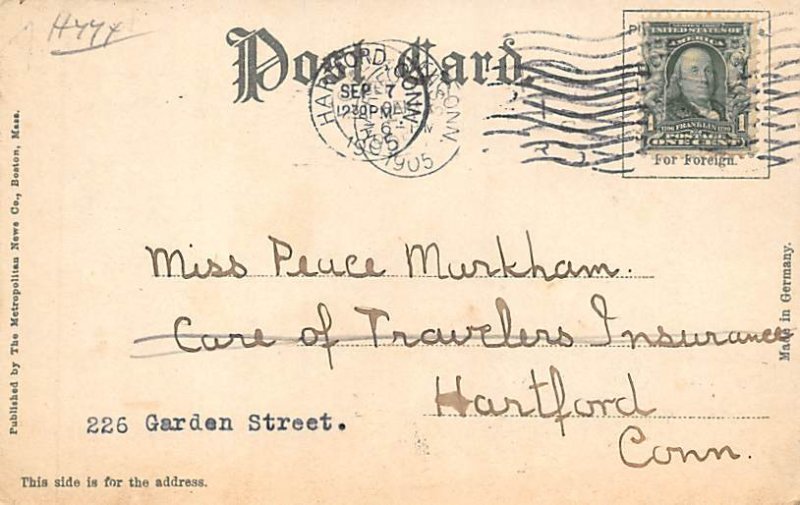 H444
Post Card.
HARTFORD, CONN.
SEP 7
1230PM
1905
1905
UNITED STATES OF
AMERICA
1 FRANKLIN 1
ONE CENT
For Foreign.
Miss Peace Markham.
Care of Travelers Insurance
Hartford
Conn.
226 Garden Street.
This side is for the address.
Published by The Metropolitan News Co., Boston, Mass.
Made in Germany.